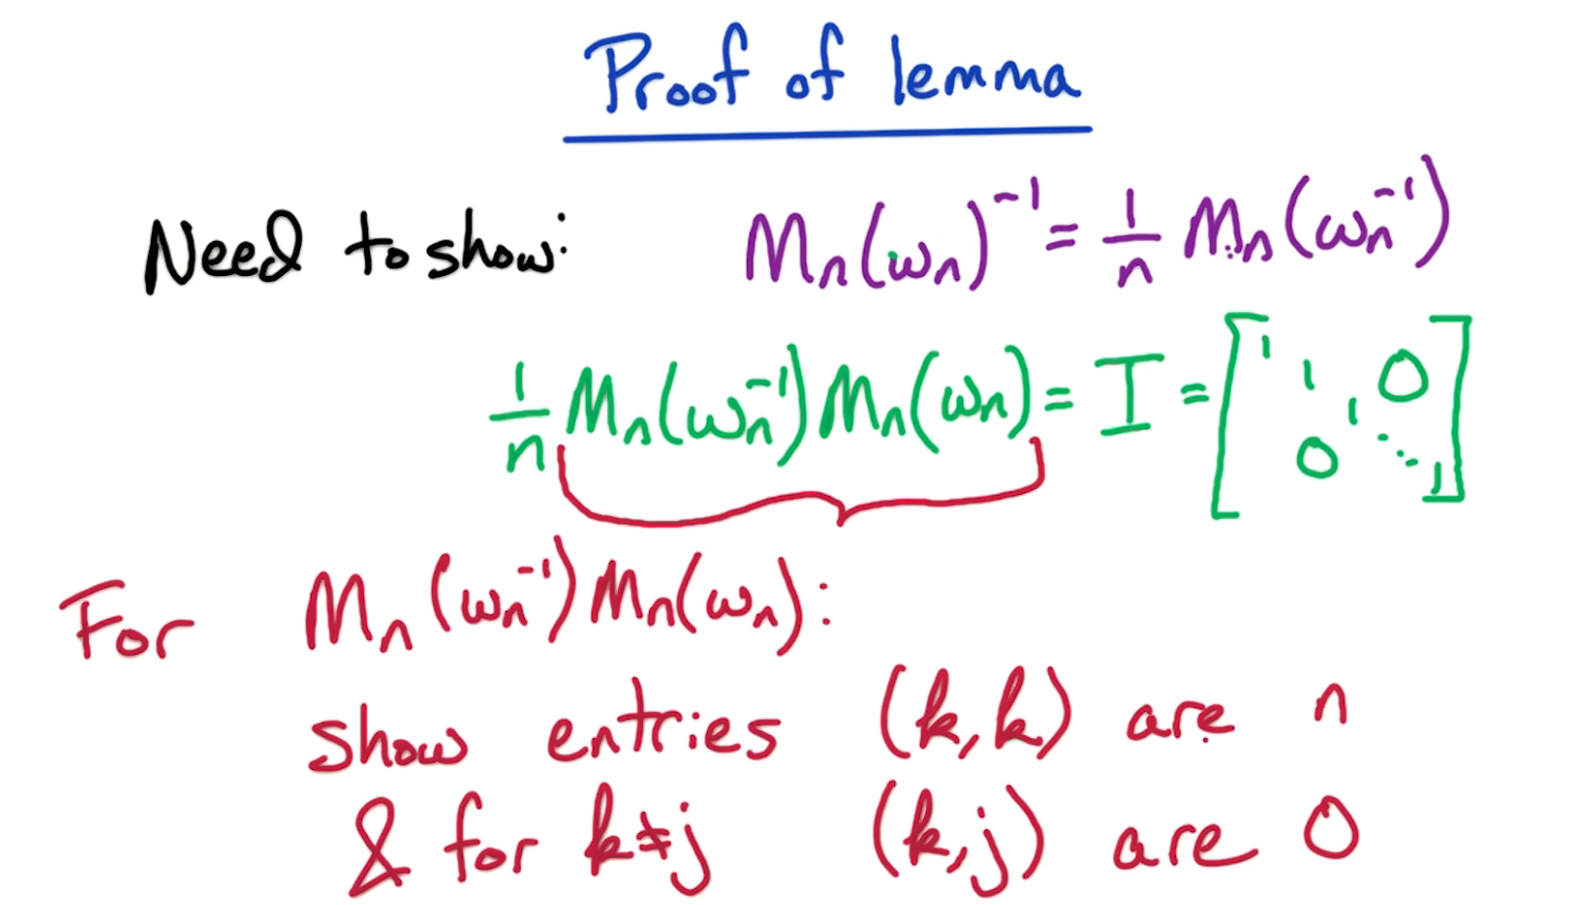 Proof of lemma
Need to show: Mₙ(ωₙ)⁻¹ = 1/n Mₙ(ωₙ⁻¹)
1/n Mₙ(ωₙ⁻¹) Mₙ(ωₙ) = I = [1 1 1 ⋱ 1 0 0]
For Mₙ(ωₙ⁻¹) Mₙ(ωₙ):
show entries (k,k) are n
& for k≠j (k,j) are 0